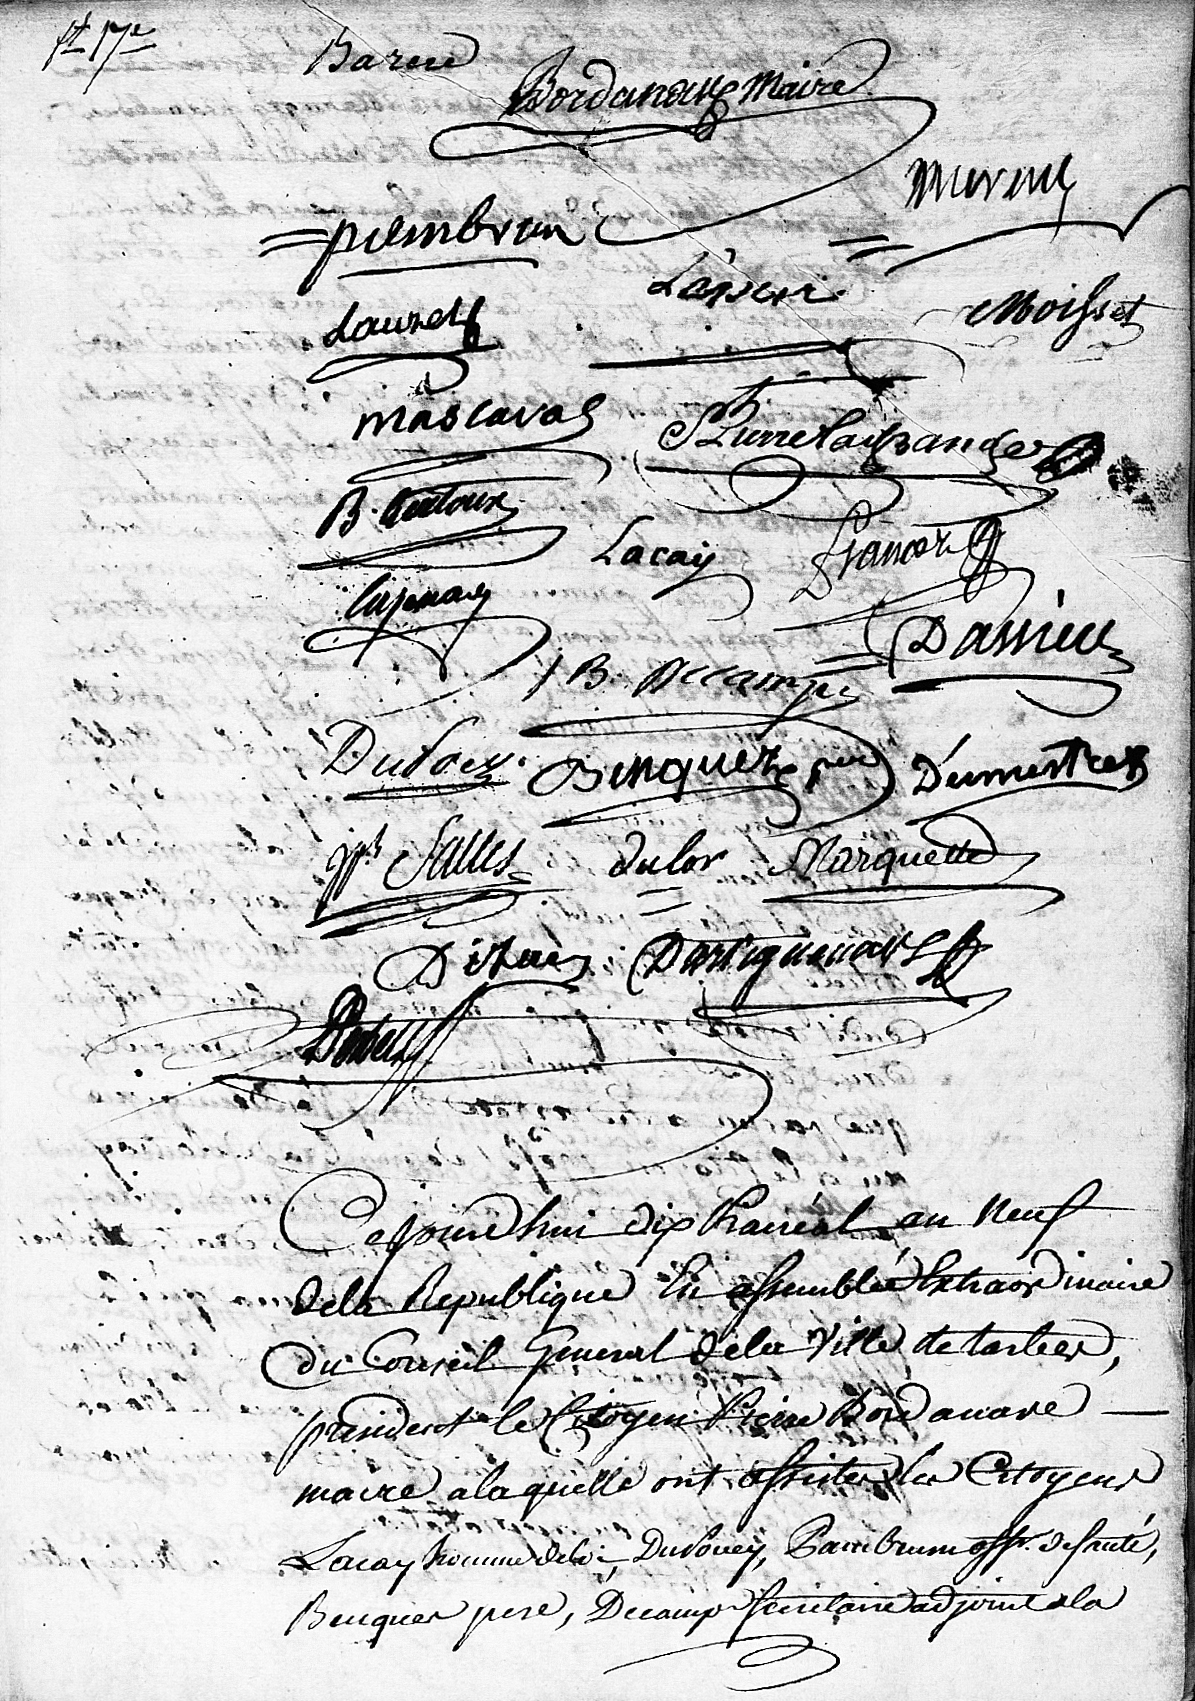 ft 17e
Barere
Bordanave maire
pembrun
Lauret
Moisset
mascaras
Pierre Lagrange
B. Certoux
Lacay
J B. Decamps
Dassieu
Duboe
Bruquer pere
Dumestre
Jph Salles
dulor
Marquette
Dartiguenave
Ce jourd'hui dix Prairéal an Neuf
de la Republique En assemblée Extraordinaire
du Conseil General de la Ville de tarbes,
president le Citoyen Pierre Bordanave
maire a laquelle ont assistes les Citoyens
Lacay homme de loi, Dubouey, Pambrun off. de santé,
Bruquer pere, Decamps Secretaire adjoint a la